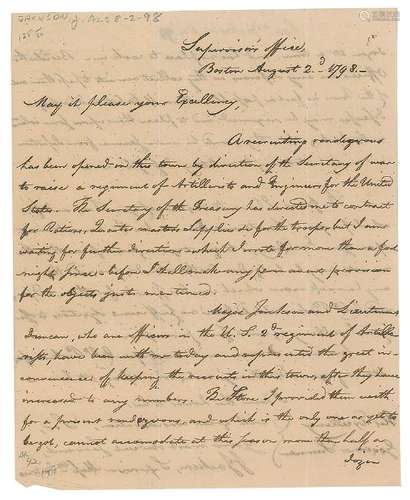 JACKSON, J. ALS 8-2-98
Supervisor's Office,
Boston August 2d. 1798.
May it please your Excellency,
A recruiting rendezvous
has been opened in this town by direction of the Secretary of war
to raise a regiment of Artillerists and Engineers for the United
States. The Secretary of the Treasury has directed me to contract
for Rations, Quarter masters Supplies &c for the troops but I am
waiting for further directions which I wrote for more than a fort
night since, before I shall make any permanent provision
for the objects just mentioned.
Major Jackson and Lieutenant
Duncan, who are officers in the U.S. 2d regiment of Artille
rists, have been with me today and represented the great in-
convenience of keeping the recruits in this town, after they have
increased to any number. The I provided them with
for a present rendezvous, and which is the only one as yet to
be got, cannot accomodate at this season more than half a
dozen